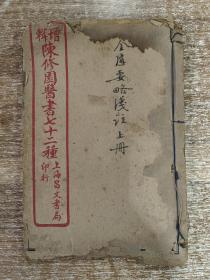 增輯陳修園醫書七十二種
上海昌文書局
印行
金匱要略淺註上冊